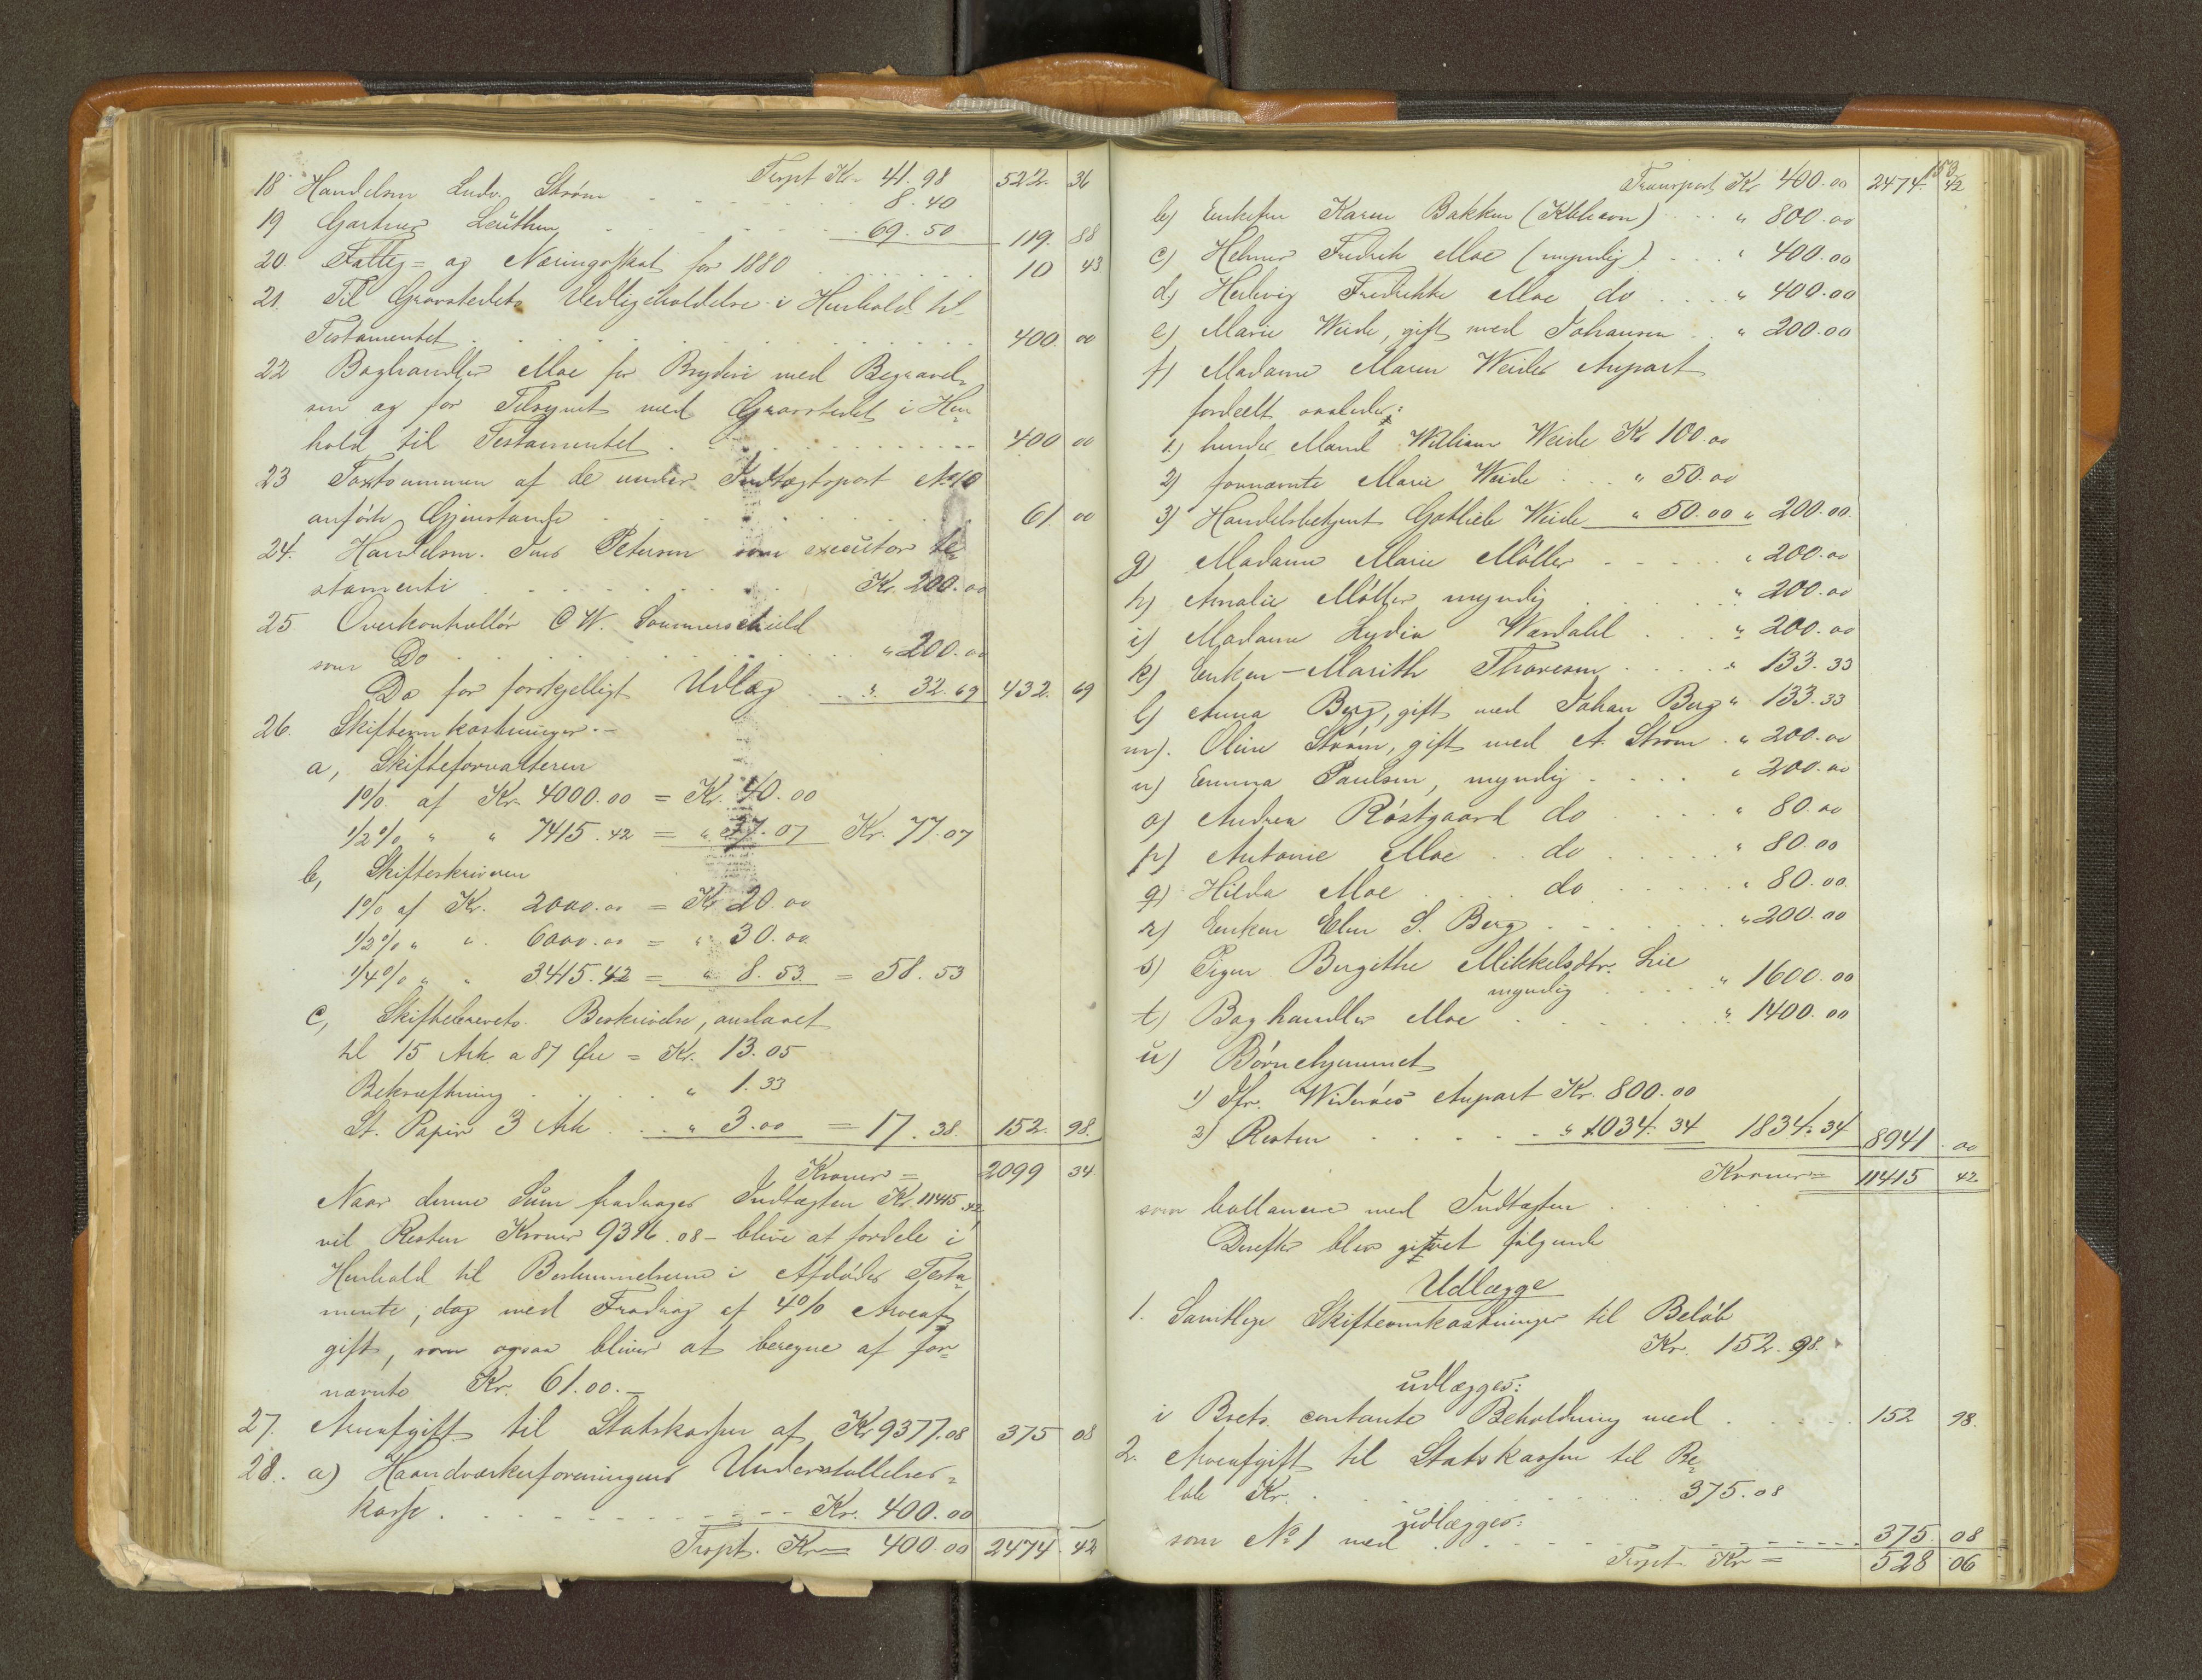 Trspt Kr. 41.98 522. 36
18 Handelsm Ludv. Strøm 8.40
19 Gartner Leuthen 69.50 119. 88
20 Fattig= og Næringsskat for 1880 10 43
21. Til Gravstedets Vedligeholdelse i Henhold til
Testamentet 400. 00
22 Boghandler Moe for Bryderi med Begravel=
sen og for Tilsynet med Gravstedet i Hen=
hold til Testamentet 400 00
23 Taxtsummen af de under Indtægtspost No 10
anførte Gjenstande 61. 00
24. Handelsm. Jens Petersen som executor te=
stamenti Kr. 200.00
25 Overkontrollør C W. Sommerschield
som Do " 200.00
Do for forskjelligt Udlæg " 32.69 432. 69
26. Skifteomkostninger.-
a, Skifteforvalteren
1% af Kr. 4000.00 = Kr. 40.00
1/2% " " 7415.42 = " 37.07 Kr. 77.07
b, Skifteskriveren
1% af Kr. 2000.00 = Kr 20.00
1/2% " " 6000.00 = " 30.00
1/4% " " 3415.42 = " 8.53 = 58.53
c, Skiftebrevets Beskrivelse, anslaaet
til 15 Ark a 87 Øre = Kr. 13.05
Bekræftning " 1.33
St. Papir 3 Ark " 3.00 = 17.38. 152. 98.
Kroner = 2099 34
Naar denne Sum fradrages Indtægten Kr. 11415.42
vil Resten Kroner 9316.08 - blive at fordele i
Henhold til Bestemmelserne i Afdødes Testa=
mente, dog med Fradrag af 4% Arveaf=
gift, som ogsaa bliver at beregne af for=
nævnte Kr. 61.00.-
27. Arveafgift til Statskassen af Kr 9377.08 375 08
28. a) Haandværkerforeningens Understøttelses=
kasse Kr. 400.00
Trspt. Kr = 400.00 2474. 42
153
Transport Kr 400.00 2474. 42
b) Enkefru Karen Bakken " 800.00
c) Helmer Fredrik Moe (myndig) " 400.00
d) Hedevig Fredrikke Moe do " 400.00
e) Marie Weide, gift med Johansen " 200.00
f) Madame Maren Weides Anpart
fordeelt saaledes:
1) hendes Mand William Weide Kr 100.00
2) fornævnte Marie Weide " 50.00
3) Handelsbetjent Gotlieb Weide " 50.00 " 200.00.
g) Madame Marie Møller " 200.00
h) Amalie Møller myndig " 200.00
i) Madame Lydia Wardahl " 200.00
k) Enken Marithe Thoresen " 133.33
l) Anna Berg, gift med Johan Berg " 133.33
m). Oline Strøm, gift med A. Strøm " 200.00
n) Emma Paulsen, myndig " 200.00
o) Andrea Röstgaard do " 80.00
p) Antonie Moe do " 80.00
q) Hilda Moe do " 80.00
r) Enken Elen S. Berg " 200.00
s) Pigen Bergithe Mikkelsdtr. Lie
myndig " 1600.00
t) Boghandler Moe " 1400.00
u) Børnehjemmet
1) Jfr. Anpart Kr. 800.00
2) Resten " 1034.34 1834.34 8941. 00
Kroner = 11415 42
som ballancere med Indtægten
Derefter blev gjort følgende
Udlægge
1. Samtlige Skifteomkostninger til Beløb
Kr. 152.98.
udlægges:
i Boets contante Beholdning med 152 98.
2. Arveafgift til Statskassen til Be=
løb Kr. 375.08
udlægges:
som No 1 med 375. 08
Trspt Kr = 528 06